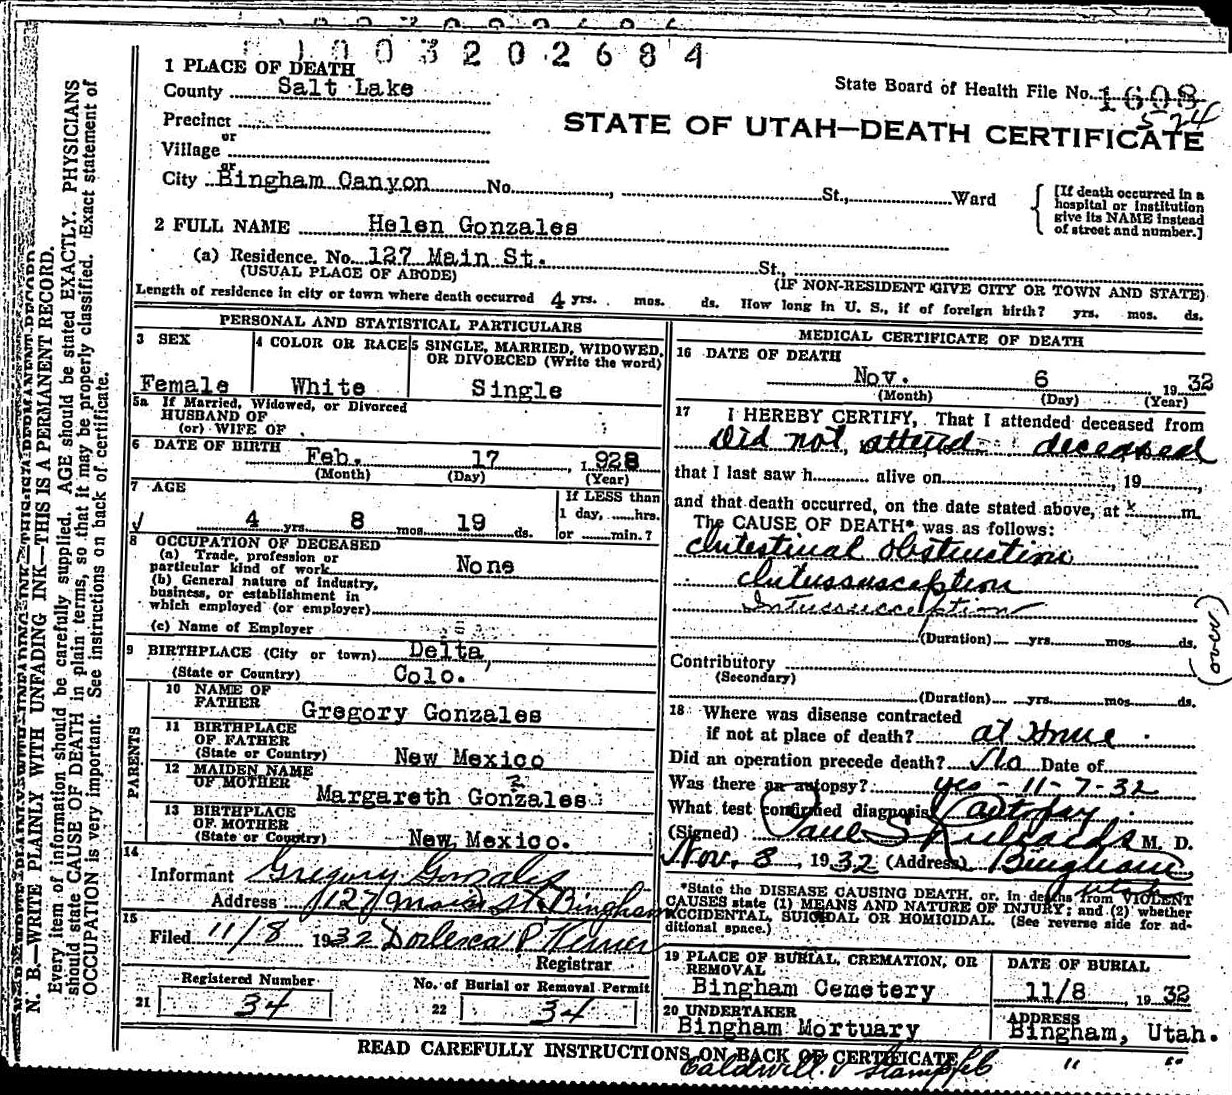 1003202684
1 PLACE OF DEATH
County Salt Lake
State Board of Health File No. 1608
524
Precinct
or
Village
or
City Bingham Canyon No. , St., Ward
STATE OF UTAH—DEATH CERTIFICATE
[If death occurred in a
hospital or institution
give its NAME instead
of street and number.]
2 FULL NAME Helen Gonzales
(a) Residence. No. 127 Main St. St.,
(USUAL PLACE OF ABODE) (IF NON-RESIDENT GIVE CITY OR TOWN AND STATE)
Length of residence in city or town where death occurred 4 yrs. mos. ds. How long in U. S., if of foreign birth? yrs. mos. ds.
PERSONAL AND STATISTICAL PARTICULARS
3 SEX
Female
4 COLOR OR RACE
White
5 SINGLE, MARRIED, WIDOWED,
OR DIVORCED (Write the word)
Single
5a If Married, Widowed, or Divorced
HUSBAND OF
(or) WIFE OF
6 DATE OF BIRTH Feb. 17, 1928
(Month) (Day) (Year)
7 AGE
4 yrs. 8 mos. 19 ds.
If LESS than
1 day, ......hrs.
or ......min.?
8 OCCUPATION OF DECEASED
(a) Trade, profession or
particular kind of work None
(b) General nature of industry,
business, or establishment in
which employed (or employer)
(c) Name of Employer
9 BIRTHPLACE (City or town) Delta,
(State or Country) Colo.
PARENTS
10 NAME OF
FATHER Gregory Gonzales
11 BIRTHPLACE
OF FATHER
(State or Country) New Mexico
12 MAIDEN NAME
OF MOTHER Margareth Gonzales
13 BIRTHPLACE
OF MOTHER
(State or Country) New Mexico.
14
Informant Gregory Gonzales
Address 127 Main St. Bingham
15
Filed 11/8 1932 P. Werner
Registrar
Registered Number
21 34
No. of Burial or Removal Permit
22 34
MEDICAL CERTIFICATE OF DEATH
16 DATE OF DEATH
Nov. 6 1932
(Month) (Day) (Year)
17 I HEREBY CERTIFY, That I attended deceased from
Did not attend deceased
that I last saw h............ alive on, 19......,
and that death occurred, on the date stated above, at m.
The CAUSE OF DEATH* was as follows:
Intestinal obstruction
Intussusception
Intussusception
(Duration) yrs. mos. ds.
(over)
Contributory
(Secondary)
(Duration) yrs. mos. ds.
18 Where was disease contracted
if not at place of death? at Home
Did an operation precede death? No Date of
Was there an autopsy? yes - 11-7-32
What test confirmed diagnosis autopsy
(Signed) Paul S Richards M. D.
Nov. 8, 1932 (Address) Bingham
Utah
*State the DISEASE CAUSING DEATH, or, in deaths from VIOLENT
CAUSES state (1) MEANS AND NATURE OF INJURY; and (2) whether
ACCIDENTAL, SUICIDAL OR HOMICIDAL. (See reverse side for ad-
ditional space.)
19 PLACE OF BURIAL, CREMATION, OR
REMOVAL
Bingham Cemetery
DATE OF BURIAL
11/8, 1932
20 UNDERTAKER
Bingham Mortuary
ADDRESS
Bingham, Utah.
READ CAREFULLY INSTRUCTIONS ON BACK OF CERTIFICATE
Caldwell " "
N. B.—WRITE PLAINLY WITH UNFADING INK—THIS IS A PERMANENT RECORD.
Every item of information should be carefully supplied. AGE should be stated EXACTLY. PHYSICIANS
should state CAUSE OF DEATH in plain terms, so that it may be properly classified. Exact statement of
OCCUPATION is very important. See instructions on back of certificate.